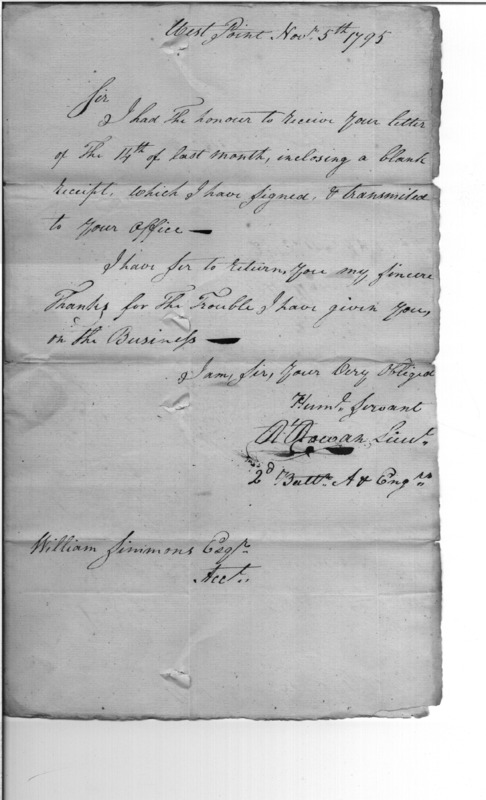 West Point Novr. 5th 1795
Sir
I had The honour to receive Your letter
of The 14th of last month, inclosing a blank
receipt, which I have signed, & transmited
to Your Office —
I have Sir to return, You my sincere
Thanks for The Trouble I have given You,
in the Business —
I am, Sir, Your Very Obliged
Humle. Servant
Rt. Rowan, Lieut.
2d Battn. A & Engrs.
William Simmons Esqr.
Acct.